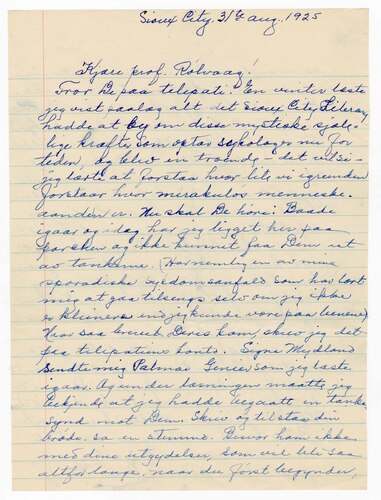 Sioux City, 31te aug. 1925
Kjære prof. Rolvaag!
Tror De paa telepati? En vinter læste
jeg vist saalag alt det Sioux City Library
hadde at by om disse mystiske sjæle-
lige kræfter som optar sykologer nu for
tiden og blev en troende – det vil si –
jeg lærte at forstaa hvor lite vi igrunden
forstaar hvor mirakuløs menneske-
aanden er. Nu skal De høre! Baade
igaar og idag har jeg ligget her paa
farsken og ikke kunnet faa Dem ut
av tankerne. (Har nemlig en av mine
sporadiske sygdomsanfald som har lært
mig at gaa tilsengs selv om jeg ikke
er kleinere end jeg kunde være paa benene)
Naar saa brevet Deres kom, skrev jeg det
paa telepatiens konto. Signe Mydland
sendte mig Palmas Geni som jeg læste
igaar. Og under læsningen maatte jeg
bekjende at jeg hadde begaatt en tanke
synd mot Dem. Skriv og tilstaa din
brøde. sa en stemme. Besvær ham ikke
med dine utgydelser, som vil bli saa
altfor lange, naar du først begynder,